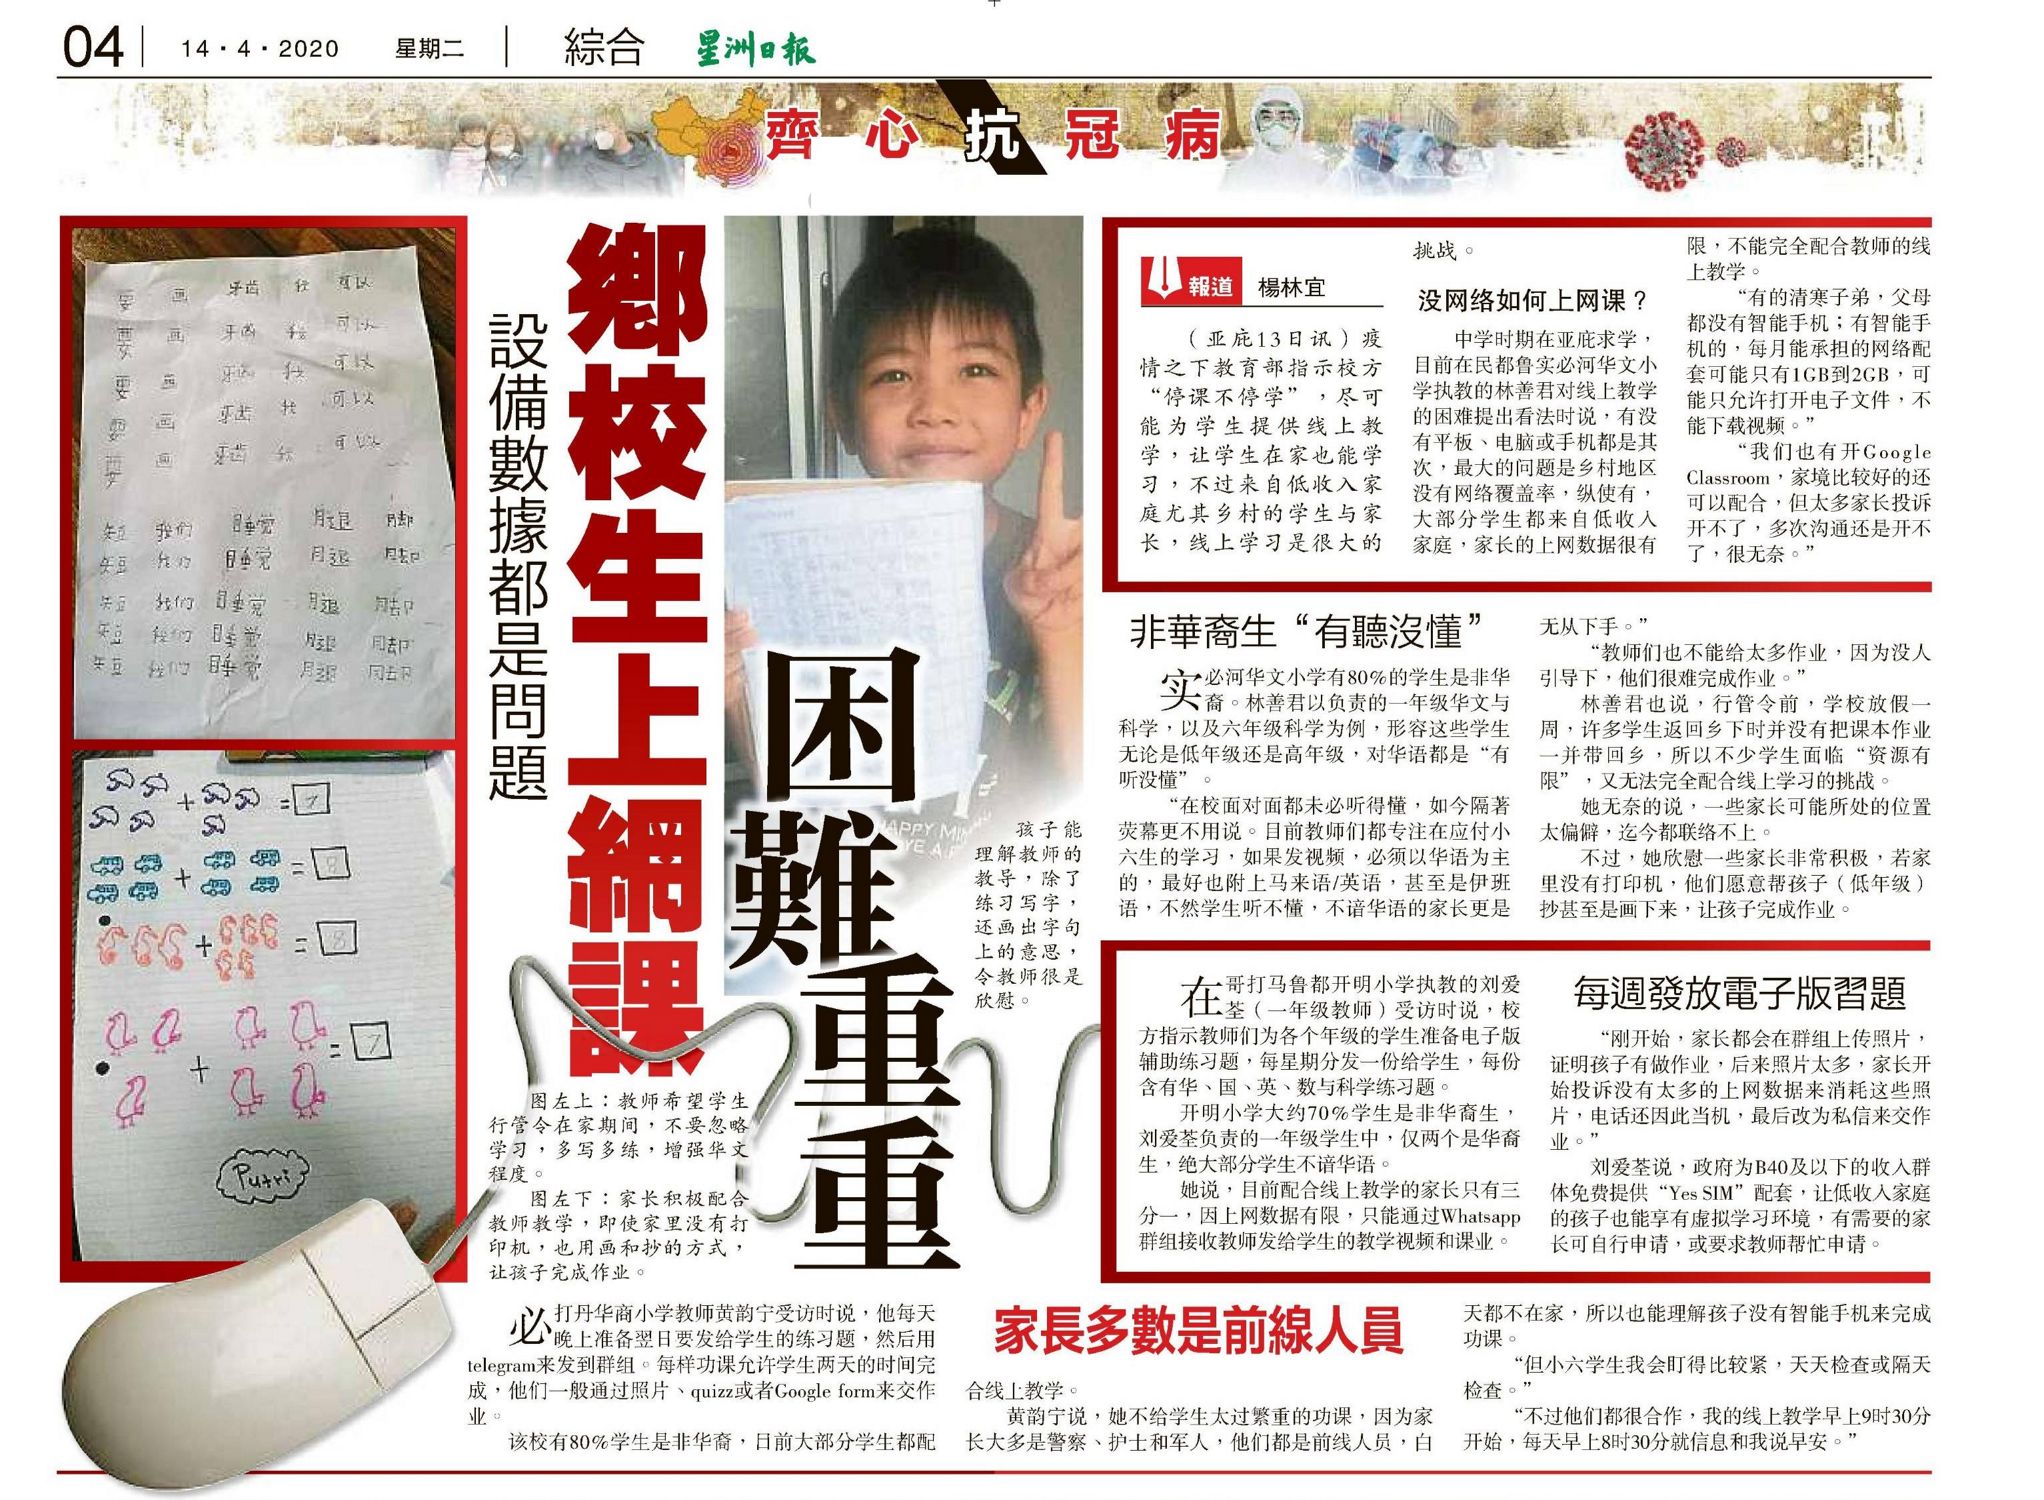 04
14·4·2020 星期二 綜合 星洲日报
齊心抗冠病
鄉校生上網課
困難重重
設備數據都是問題
要 画 牙齿 我 可以
要 画 牙齿 我 可以
要 画 牙齿 我 可以
要 画 牙齿 我 可以
要 画 牙齿 我 可以
短 我们 睡觉 腿 脚
短 我们 睡觉 腿 脚
短 我们 睡觉 腿 脚
短 我们 睡觉 腿 脚
短 我们 睡觉 腿 脚
+ = 7
+ = 9
+ = 8
+ = 7
Putri
孩子能
理解教师的
教导，除了
练习写字，
还画出字句
上的意思，
令教师很是
欣慰。
图左上：教师希望学生
行管令在家期间，不要忽略
学习，多写多练，增强华文
程度。
图左下：家长积极配合
教师教学，即使家里没有打
印机，也用画和抄的方式，
让孩子完成作业。
報道 楊林宜
（亚庇13日讯）疫
情之下教育部指示校方
“停课不停学”，尽可
能为学生提供线上教
学，让学生在家也能学
习，不过来自低收入家
庭尤其乡村的学生与家
长，线上学习是很大的
挑战。
没网络如何上网课？
中学时期在亚庇求学，
目前在民都鲁实必河华文小
学执教的林善君对线上教学
的困难提出看法时说，有没
有平板、电脑或手机都是其
次，最大的问题是乡村地区
没有网络覆盖率，纵使有，
大部分学生都来自低收入
家庭，家长的上网数据很有
限，不能完全配合教师的线
上教学。
“有的清寒子弟，父母
都没有智能手机；有智能手
机的，每月能承担的网络配
套可能只有1GB到2GB，可
能只允许打开电子文件，不
能下载视频。”
“我们也有开Google
Classroom，家境比较好的还
可以配合，但太多家长投诉
开不了，多次沟通还是开不
了，很无奈。”
非華裔生“有聽沒懂”
实必河华文小学有80%的学生是非华
裔。林善君以负责的一年级华文与
科学，以及六年级科学为例，形容这些学生
无论是低年级还是高年级，对华语都是“有
听没懂”。
“在校面对面都未必听得懂，如今隔著
荧幕更不用说。目前教师们都专注在应付小
六生的学习，如果发视频，必须以华语为主
的，最好也附上马来语/英语，甚至是伊班
语，不然学生听不懂，不谙华语的家长更是
无从下手。”
“教师们也不能给太多作业，因为没人
引导下，他们很难完成作业。”
林善君也说，行管令前，学校放假一
周，许多学生返回乡下时并没有把课本作业
一并带回乡，所以不少学生面临“资源有
限”，又无法完全配合线上学习的挑战。
她无奈的说，一些家长可能所处的位置
太偏僻，迄今都联络不上。
不过，她欣慰一些家长非常积极，若家
里没有打印机，他们愿意帮孩子（低年级）
抄甚至是画下来，让孩子完成作业。
在哥打马鲁都开明小学执教的刘爱
荃（一年级教师）受访时说，校
方指示教师们为各个年级的学生准备电子版
辅助练习题，每星期分发一份给学生，每份
含有华、国、英、数与科学练习题。
开明小学大约70%学生是非华裔生，
刘爱荃负责的一年级学生中，仅两个是华裔
生，绝大部分学生不谙华语。
她说，目前配合线上教学的家长只有三
分一，因上网数据有限，只能通过Whatsapp
群组接收教师发给学生的教学视频和课业。
每週發放電子版習題
“刚开始，家长都会在群组上传照片，
证明孩子有做作业，后来照片太多，家长开
始投诉没有太多的上网数据来消耗这些照
片，电话还因此当机，最后改为私信来交作
业。”
刘爱荃说，政府为B40及以下的收入群
体免费提供“Yes SIM”配套，让低收入家庭
的孩子也能享有虚拟学习环境，有需要的家
长可自行申请，或要求教师帮忙申请。
必打丹华商小学教师黄韵宁受访时说，他每天
晚上准备翌日要发给学生的练习题，然后用
telegram来发到群组。每样功课允许学生两天的时间完
成，他们一般通过照片、quizz或者Google form来交作
业。
该校有80%学生是非华裔，日前大部分学生都配
家長多數是前線人員
合线上教学。
黄韵宁说，她不给学生太过繁重的功课，因为家
长大多是警察、护士和军人，他们都是前线人员，白
天都不在家，所以也能理解孩子没有智能手机来完成
功课。
“但小六学生我会盯得比较紧，天天检查或隔天
检查。”
“不过他们都很合作，我的线上教学早上9时30分
开始，每天早上8时30分就信息和我说早安。”